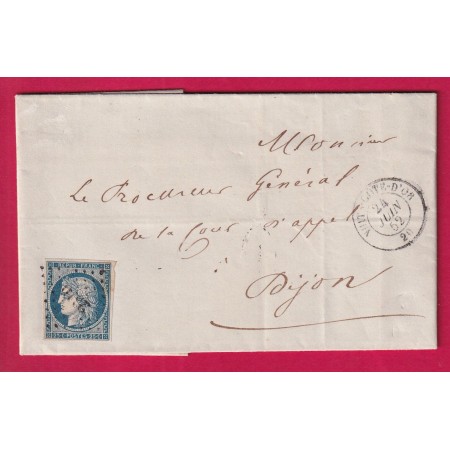 Monsieur
Le Procureur Général
de la Cour d'appel
à
Dijon
CÔTE-D'OR
24
JUIN
52
20
REPUB. FRANC.
25 C POSTES 25 C